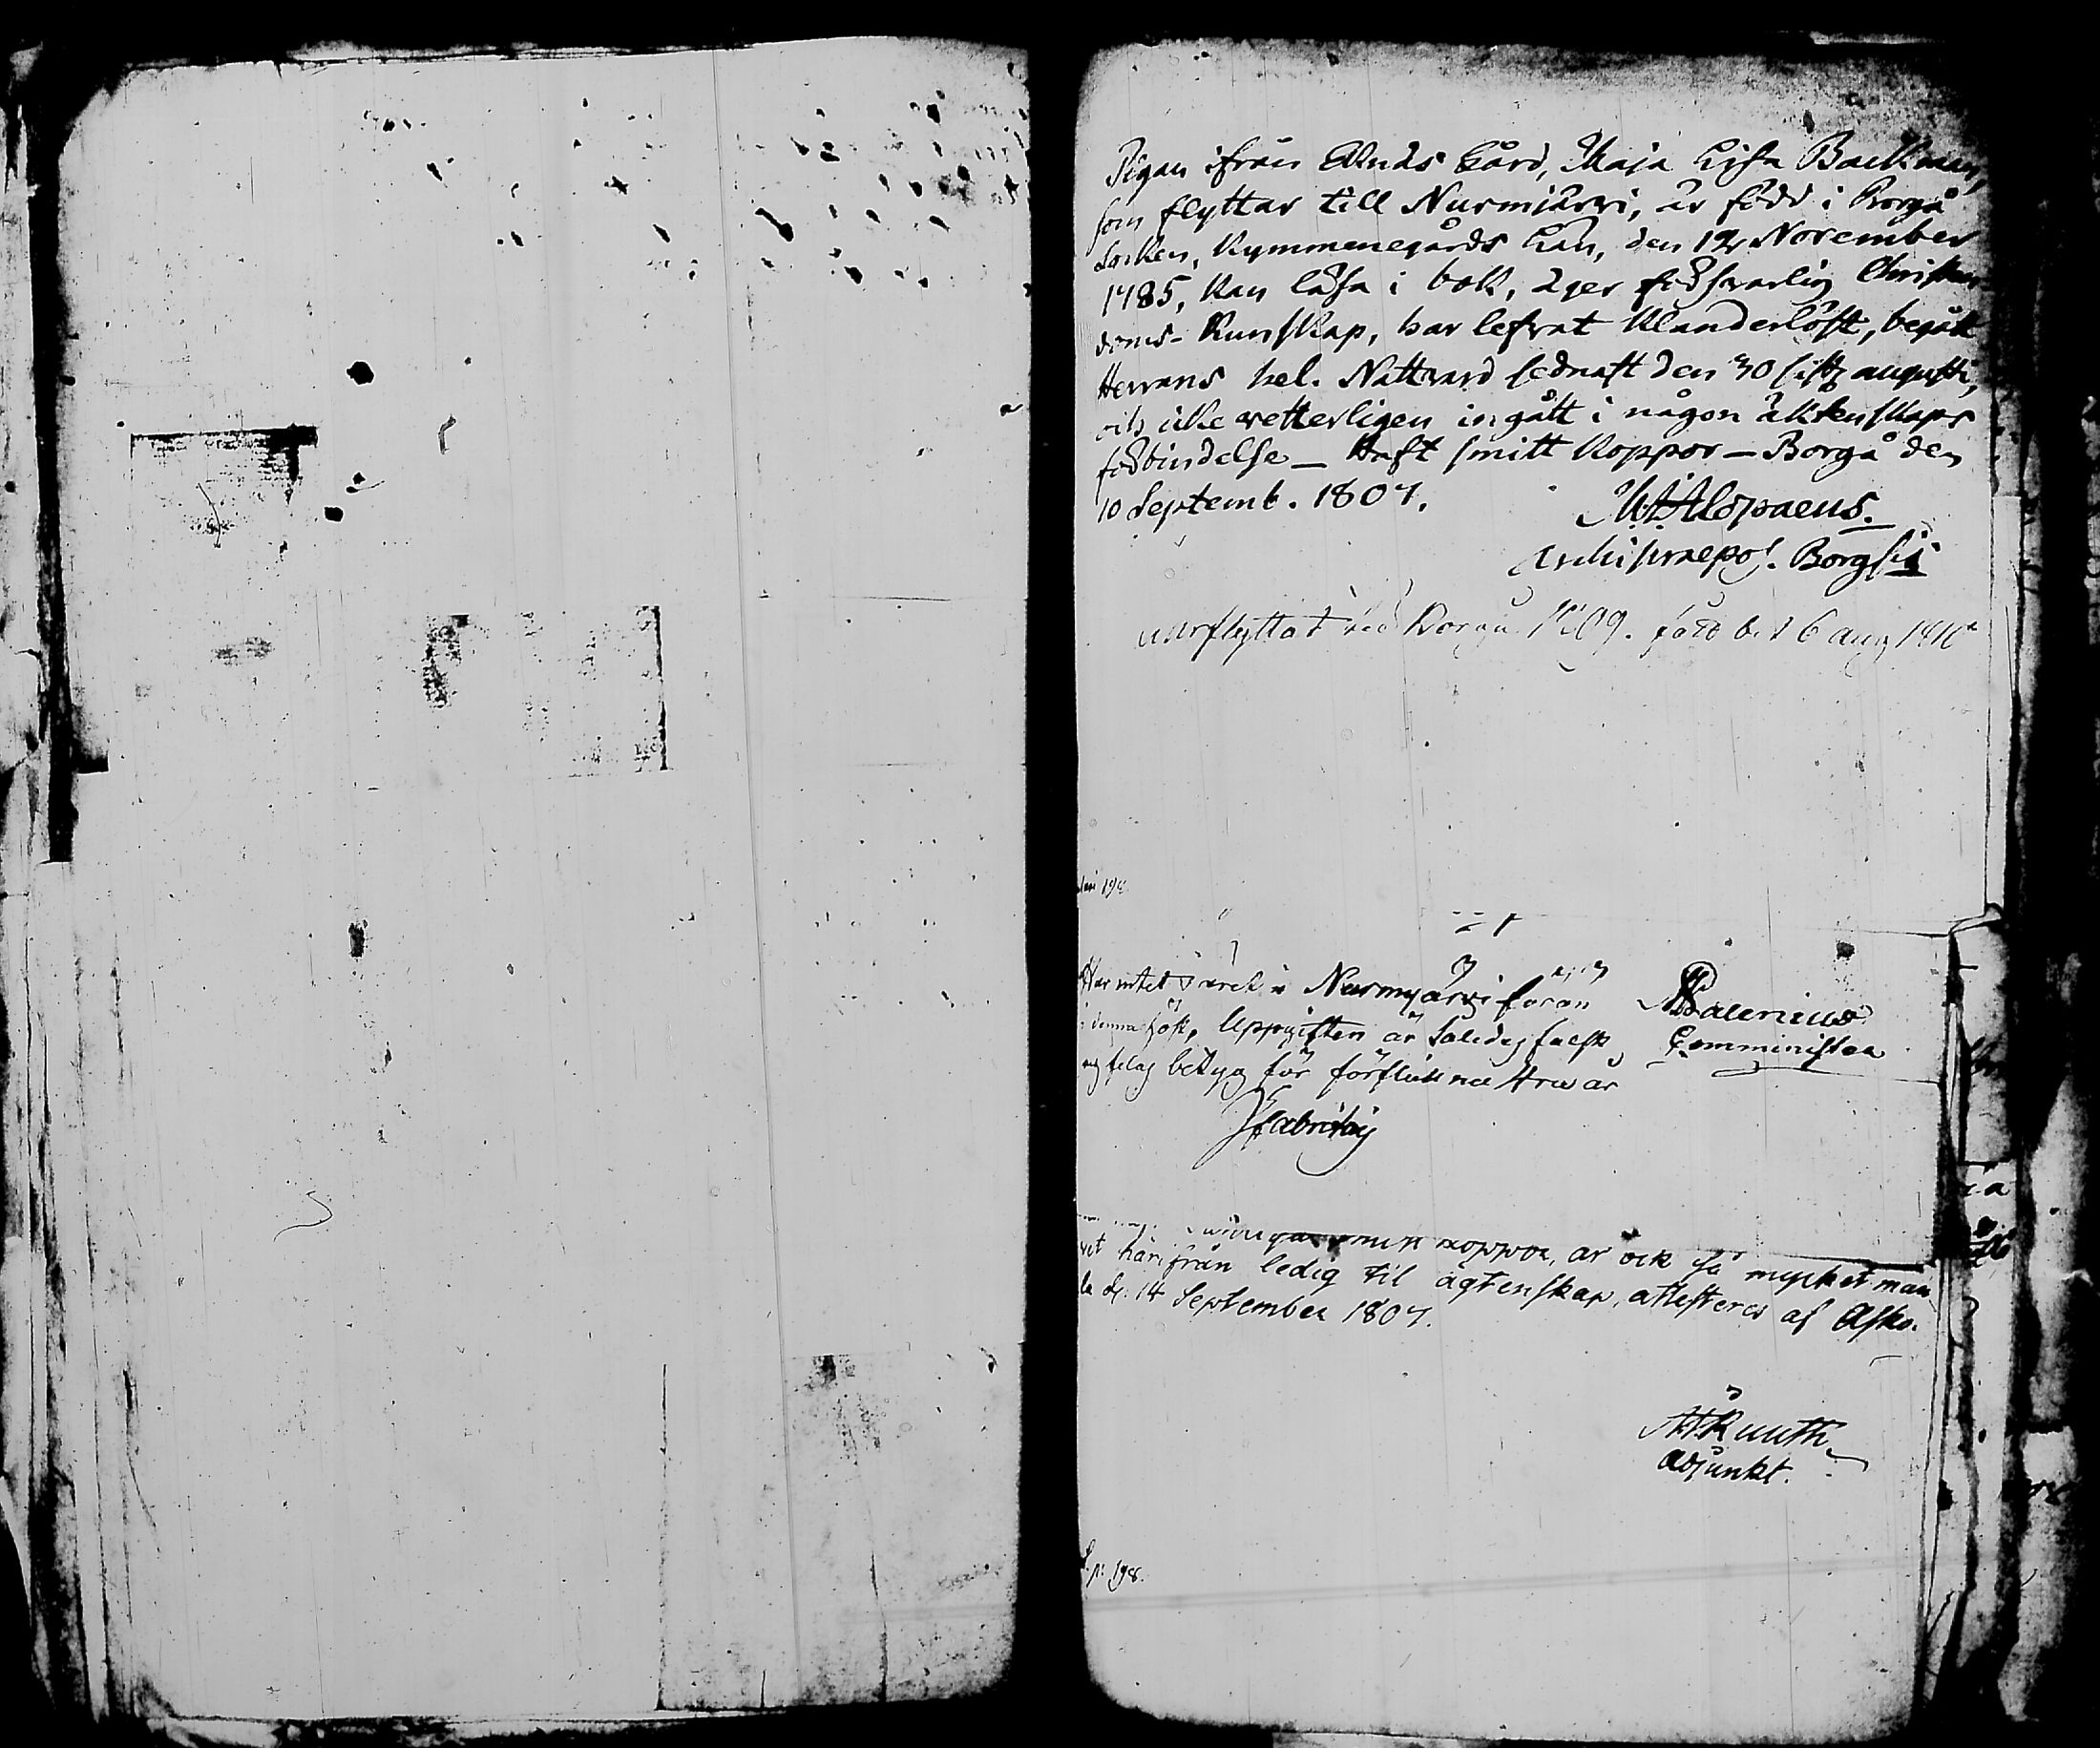 Pigan ifrån Gård, Maja Lisa Backman,
som flyttar till Nurmijärvi, är född i Borgå
Socken, Kymmenegårds Län, den 12 November
1785, kan läsa i bok, äger försvarlig Christen
doms-Kunskap, har lefvat klanderlöst, begått
Herrans hel. Nattvard sednast den 30 sistl. augusti,
och icke vetterligen ingått i någon äktenskaps
förbindelse – Haft smitt koppor – Borgå den
10 Septemb. 1807.
M. Alopaeus.
Archipraepos. Borgsis
flyttat Borgå 1809. 6 aug
198
Har intet varit i Nurmijärvi
i denna höst, Uppgiften är således falsk,
betyg för förflutna 4ra år
Comminister
koppor, är ock så mycket man
vet härifrån ledig til ägtenskap, attesteras af Asko-
la d. 14 September 1807.
Kruuth
Adjunkt.
p. 198.